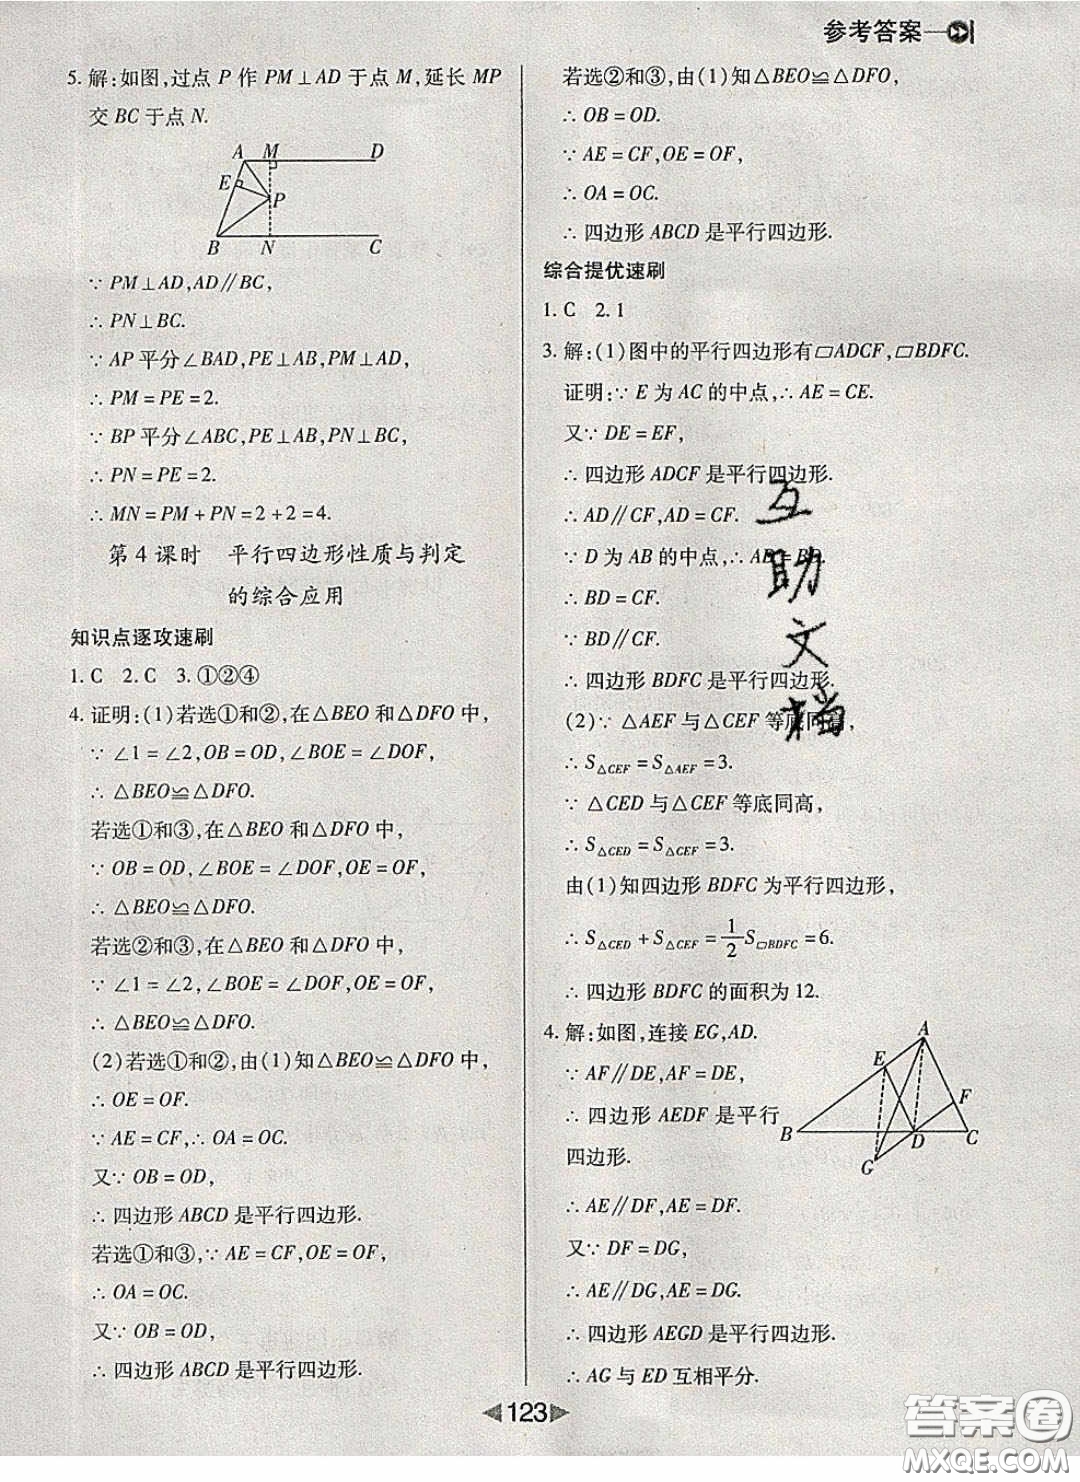 参考答案
5. 解:如图,过点 P 作 PM⊥AD 于点 M,延长 MP
交 BC 于点 N.
A M D
E
P
B N C
∵ PM⊥AD,AD∥BC,
∴ PN⊥BC.
∵ AP 平分∠BAD,PE⊥AB,PM⊥AD,
∴ PM = PE = 2.
∵ BP 平分∠ABC,PE⊥AB,PN⊥BC,
∴ PN = PE = 2.
∴ MN = PM + PN = 2 + 2 = 4.
第 4 课时 平行四边形性质与判定
的综合应用
知识点逐攻速刷
1. C 2. C 3. ①②④
4. 证明:(1)若选①和②,在△BEO 和△DFO 中,
∵ ∠1 = ∠2,OB = OD,∠BOE = ∠DOF,
∴ △BEO≌△DFO.
若选①和③,在△BEO 和△DFO 中,
∵ OB = OD,∠BOE = ∠DOF,OE = OF,
∴ △BEO≌△DFO.
若选②和③,在△BEO 和△DFO 中,
∵ ∠1 = ∠2,∠BOE = ∠DOF,OE = OF,
∴ △BEO≌△DFO.
(2)若选①和②,由(1)知△BEO≌△DFO,
∴ OE = OF.
∵ AE = CF,∴ OA = OC.
又∵ OB = OD,
∴ 四边形 ABCD 是平行四边形.
若选①和③,∵ AE = CF,OE = OF,
∴ OA = OC.
又∵ OB = OD,
∴ 四边形 ABCD 是平行四边形.
若选②和③,由(1)知△BEO≌△DFO,
∴ OB = OD.
∵ AE = CF,OE = OF,
∴ OA = OC.
∴ 四边形 ABCD 是平行四边形.
综合提优速刷
1. C 2. 1
3. 解:(1)图中的平行四边形有▱ADCF,▱BDFC.
证明:∵ E 为 AC 的中点,∴ AE = CE.
又∵ DE = EF,
∴ 四边形 ADCF 是平行四边形.
∴ AD∥CF,AD = CF.
∵ D 为 AB 的中点,∴ AD = BD.
∴ BD = CF.
∵ BD∥CF.
∴ 四边形 BDFC 是平行四边形.
(2)∵ △AEF 与△CEF 等底同高,
∴ S△CEF = S△AEF = 3.
∵ △CED 与△CEF 等底同高,
∴ S△CED = S△CEF = 3.
由(1)知四边形 BDFC 为平行四边形,
∴ S△CED + S△CEF = 1/2 S▱BDFC = 6.
∴ 四边形 BDFC 的面积为 12.
4. 解:如图,连接 EG,AD.
∵ AF∥DE,AF = DE,
∴ 四边形 AEDF 是平行
四边形.
∴ AE∥DF,AE = DF.
又∵ DF = DG,
∴ AE∥DG,AE = DG.
∴ 四边形 AEGD 是平行四边形.
∴ AG 与 ED 互相平分.
A
E
F
B D C
G
互助文档
123
答案圈
MXQE.COM